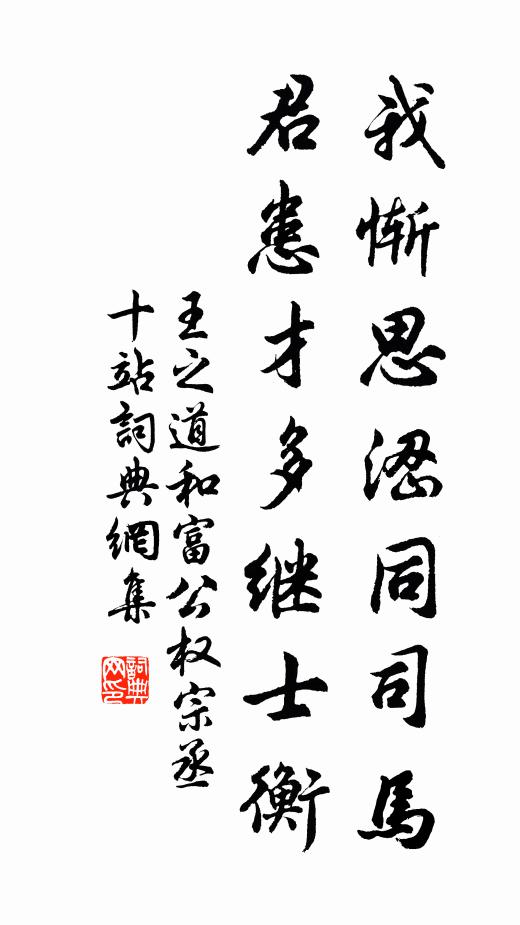 我惭思涩同司马
君患才多继士衡
王之道和富公权宗丞
十站詞典網集
詞典網印